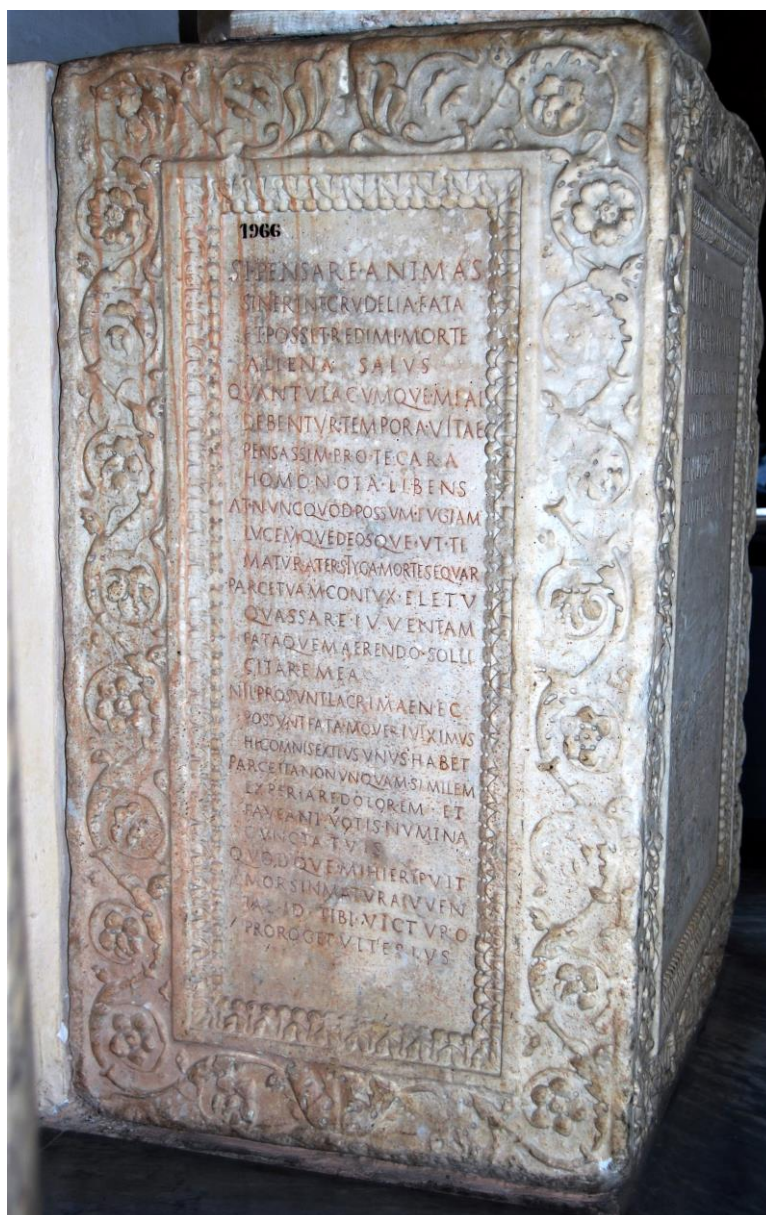 1966
SI·PENSARE·ANIMAS
SINERENT·CRVDELIA·FATA
ET·POSSET·REDIMI·MORTE
ALIENA SALVS
QVANTVLACVMQVE·MEAE
DEBENTVR·TEMPORA·VITAE
PENSASSEM·PRO·TE·CARA
HOMONOEA·LIBENS
AT·NVNC·QVOD·POSSVM·FVGIAM
LVCEMQVE·DEOSQVE·VT·TE
MATVRA·PER·STYGA·MORTE·SEQVAR
PARCE·TVAM·CONIVX·FLETV
QVASSARE·IVVENTAM
FATAQVE·MAERENDO·SOLLI
CITARE MEA
NIL·PROSVNT·LACRIMAE·NEC
POSSVNT·FATA·MOVERI·VIXIMVS
HIC·OMNIS·EXITVS·VNVS·HABET
PARCE·ITA·NON·VNQVAM·SIMILEM
EXPERIARE·DOLOREM ET
FAVEANT·VOTIS·NVMINA
CVNCTA TVIS
QVODQVE·MIHI·ERIPVIT
MORS·INMATVRA·IVVEN
TAE·ID·TIBI·VICTVRO
PROROGET·VLTERIVS